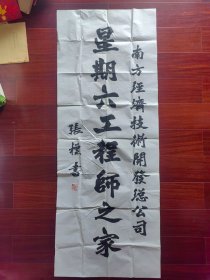 南方經濟技術開發總公司
星期六工程師之家
張棖書